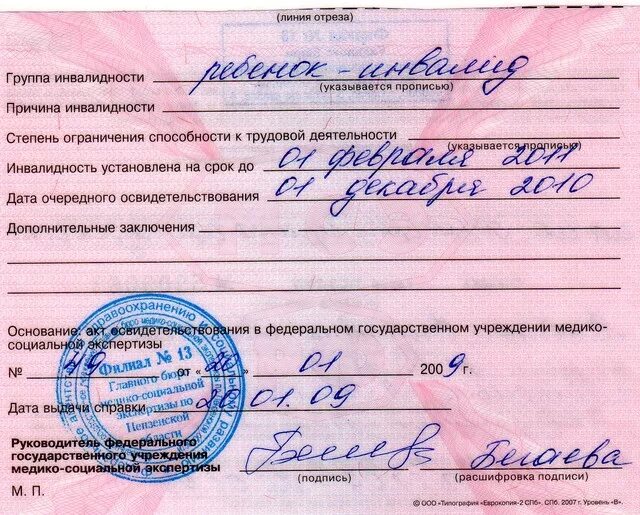 (линия отреза)
Группа инвалидности ребенок-инвалид
(указывается прописью)
Причина инвалидности
Степень ограничения способности к трудовой деятельности
(указывается прописью)
Инвалидность установлена на срок до 01 февраля 2011
Дата очередного освидетельствования 01 декабря 2010
Дополнительные заключения
Основание: акт освидетельствования в федеральном государственном учреждении медико-
социальной экспертизы
№ 49 от « 20 » 01 2009 г.
Филиал № 13
Главного бюро
медико-социальной
экспертизы по
Пензенской
области
Дата выдачи справки 20.01.09
Руководитель федерального
государственного учреждения
медико-социальной экспертизы
(подпись)
Бегаева
(расшифровка подписи)
М. П.
© ООО «Типография «Еврокопия-2 СПб». СПб. 2007 г. Уровень «В».